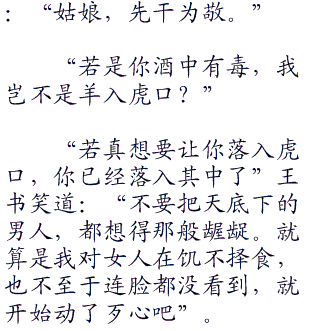 ：“姑娘，先干为敬。”
“若是你酒中有毒，我
岂不是羊入虎口？”
“若真想要让你落入虎
口，你已经落入其中了”王
书笑道：“不要把天底下的
男人，都想得那般龌龊。就
算是我对女人在饥不择食，
也不至于连脸都没看到，就
开始动了歹心吧”。